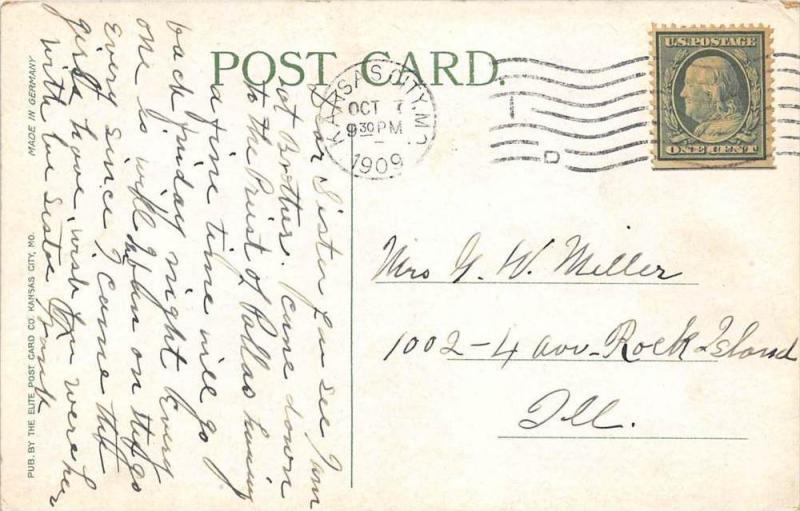 POST CARD.
KANSAS CITY, MO.
OCT 7
9 30 PM
1909
D
U.S. POSTAGE
ONE CENT
Mrs G. W. Miller
1002-4 avv. Rock Island
Ill.
Dear Sister you see I am
at Brothers. came down
to the Priest of Pallas having
a fine time will go
back friday night Every
one is well on the go
Every since I came the
girls have, wish you were her
with love Sister
MADE IN GERMANY
PUB. BY THE ELITE POST CARD CO. KANSAS CITY, MO.